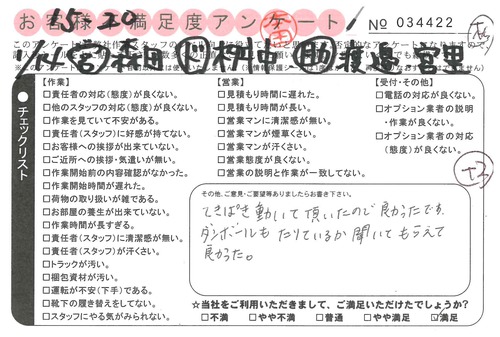 お客様 満足度アンケート
15-20
No 034422
【作業】
□責任者の対応(態度)が良くない。
□他のスタッフの対応(態度)が良くない。
□作業を見ていて不安がある。
□責任者(スタッフ)に好感が持てない。
□お客様への挨拶が出来ていない。
□ご近所への挨拶・気遣いが無い。
□作業開始前の内容確認がなかった。
□作業開始時間が遅れた。
□荷物の取り扱いが雑である。
□お部屋の養生が出来ていない。
□作業時間が長すぎる。
□責任者(スタッフ)に清潔感が無い。
□責任者(スタッフ)が汗くさい。
□トラックが汚い。
□梱包資材が汚い。
□運転が不安(下手)である。
□靴下の履き替えをしてない。
□スタッフにやる気がみられない。
●チェックリスト
【営業】
□見積もり時間に遅れた。
□見積もり時間が長い。
□営業マンに清潔感が無い。
□営業マンが煙草くさい。
□営業マンが汗くさい。
□営業態度が良くない。
□営業の説明と作業が一致してない。
【受付・その他】
□電話の対応が良くない。
□オプション業者の説明
・作業が良くない。
□オプション業者の対応
(態度)が良くない。
+3
その他、ご意見・ご要望等ありましたらお書き下さい。
てきぱき動いて頂いたので良かったです。
ダンボールも たりているか 聞いて もらえて
良かった。
☆当社をご利用いただきまして、ご満足いただけたでしょうか?
□不満 □やや不満 □普通 □やや満足 ☑満足